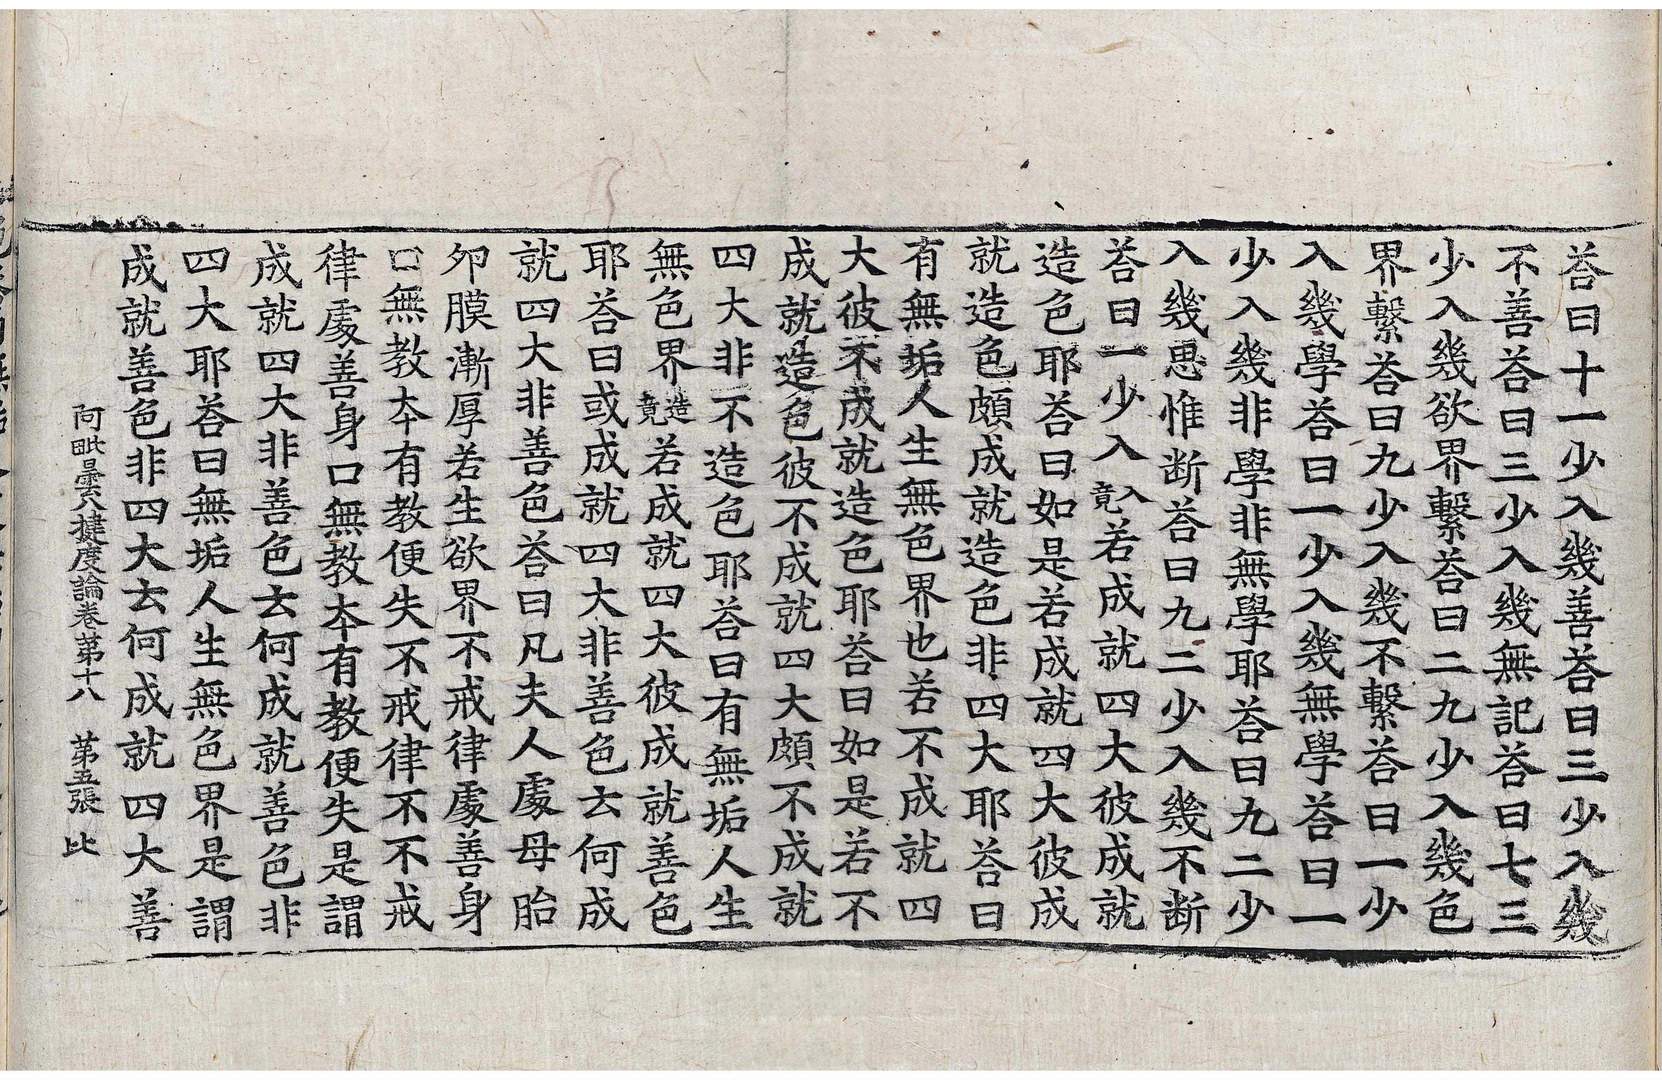 荅曰十一少入幾善荅曰三少入幾
不善荅曰三少入幾無記荅曰七三
少入幾欲界繫荅曰二九少入幾色
界繫荅曰九少入幾不繫荅曰一少
入幾學荅曰一少入幾無學荅曰一
少入幾非學非無學耶荅曰九二少
入幾思惟断荅曰九二少入幾不断
荅曰一少入入竟若成就四大彼成就
造色耶荅曰如是若成就四大彼成
就造色頗成就造色非四大耶荅曰
有無垢人生無色界也若不成就四
大彼不成就造色耶荅曰如是若不
成就造色彼不成就四大頗不成就
四大非不造色耶荅曰有無垢人生
無色界造竟若成就四大彼成就善色
耶荅曰或成就四大非善色云何成
就四大非善色荅曰凡夫人處母胎
夘膜漸厚若生欲界不戒律處善身
口無教夲有教便失不戒律不不戒
律處善身口無教夲有教便失是謂
成就四大非善色云何成就善色非
四大耶荅曰無垢人生無色界是謂
成就善色非四大云何成就四大善
阿毗曇八揵度論卷苐十八 苐五張 比